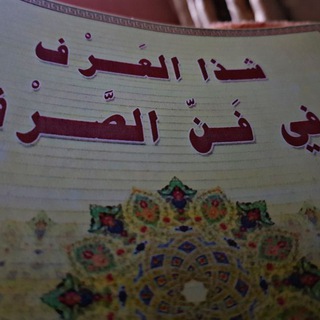 شذا العَرْف
في فَنِّ الصَّرْف